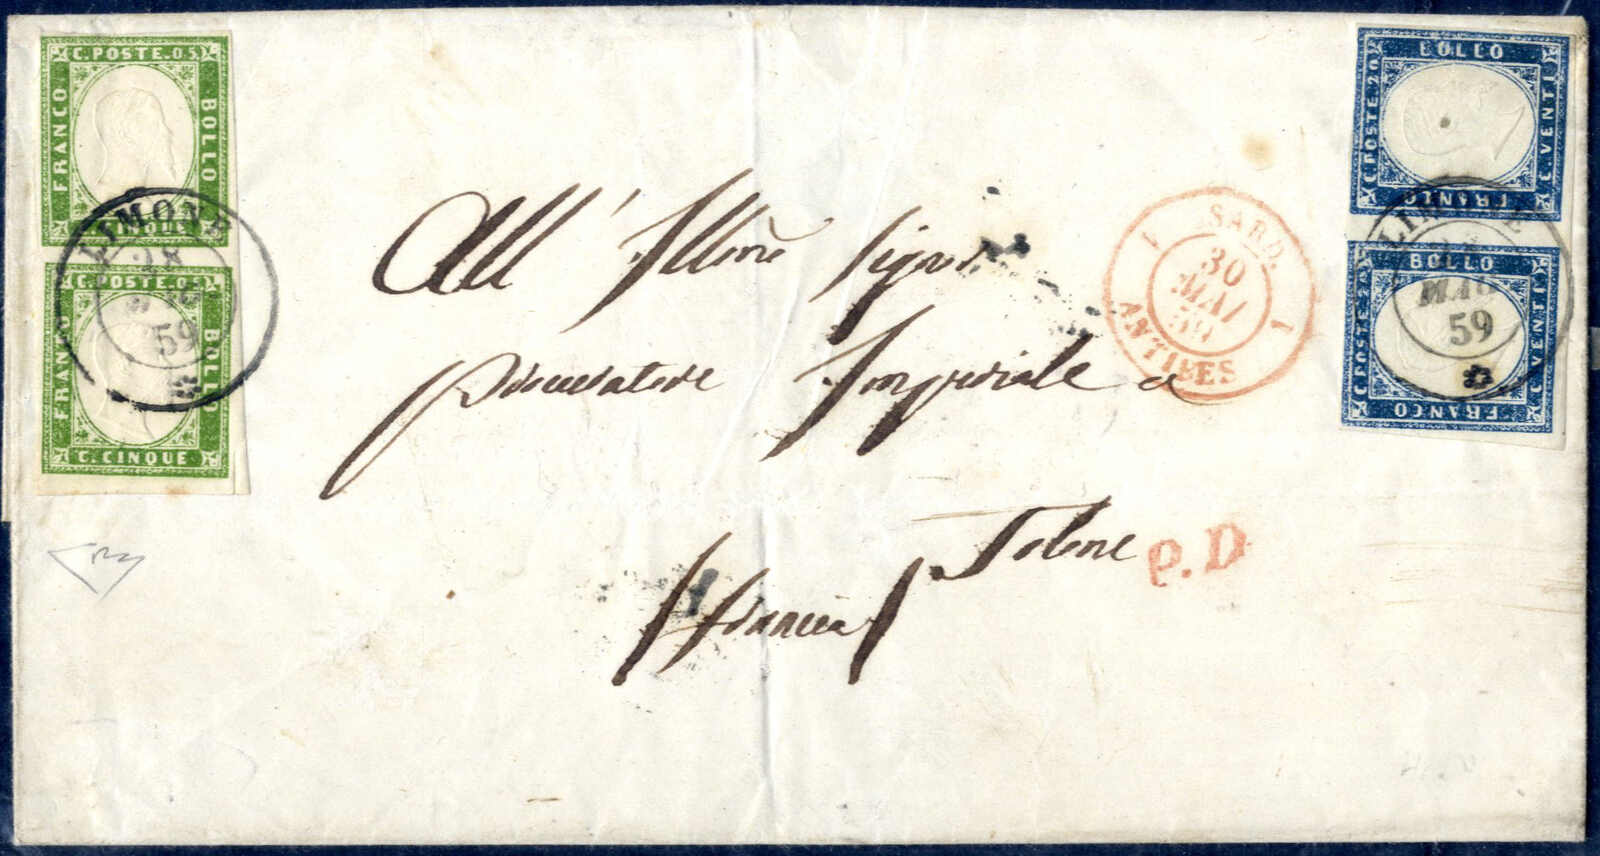 C. POSTE. 05
FRANCO
BOLLO
C. POSTE. 05
FRANCO
BOLLO
C. CINQUE
LIMONE
28
59
All' Illmo Signor
Procuratore Imperiale a
Tolone
Francia
1 SARD. 1
30
MAI
59
ANTIBES
P.D
BOLLO
C. POSTE. 20
C. VENTI
FRANCO
BOLLO
C. POSTE. 20
C. VENTI
FRANCO
MAG
59